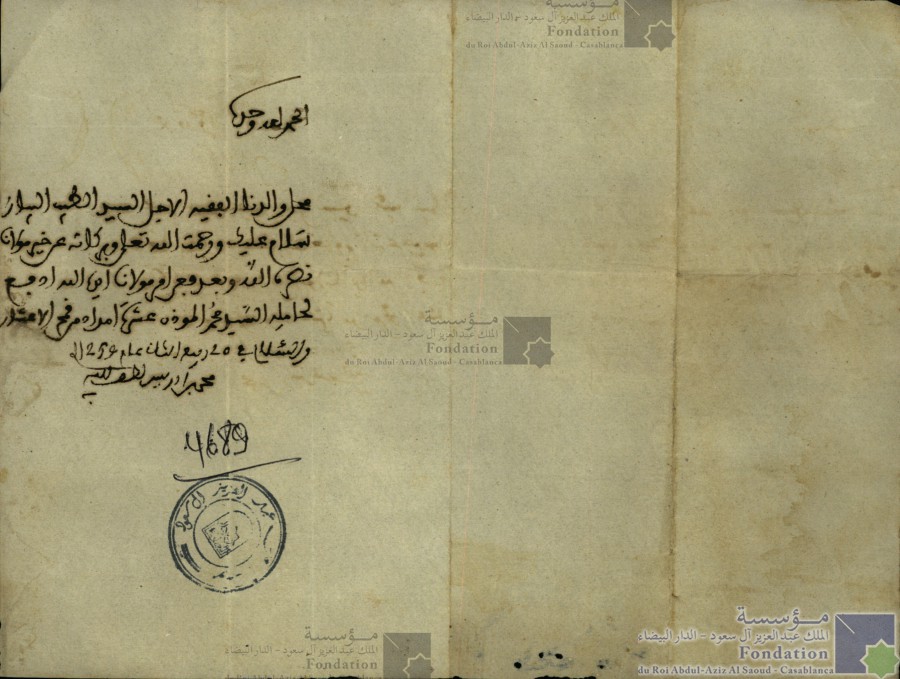 مؤسسة
الملك عبد العزيز آل سعود - الدار البيضاء
Fondation
du Roi Abdul-Aziz Al Saoud - Casablanca
الحمد لله وحده
محل والدنا الفقيه الاجل السيد الطيب البياز
سلام عليك ورحمت الله تعلى وبركاته عن خير مولانا
نصره الله وبعد فقد امر مولانا ايده الله ادفع
لحامله السيد محمد الموذن عشرة امداد من قمح الاعشار
والسلام في 20 ربيع الثاني عام 1259
محمد بن ادريس لطف الله به
4689
عبد العزيز آل سعود
مؤسسة
الملك عبد العزيز آل سعود - الدار البيضاء
Fondation
du Roi Abdul-Aziz Al Saoud - Casablanca
مؤسسة
الملك عبد العزيز آل سعود - الدار البيضاء
Fondation
مؤسسة
الملك عبد العزيز آل سعود - الدار البيضاء
Fondation
du Roi Abdul-Aziz Al Saoud - Casablanca